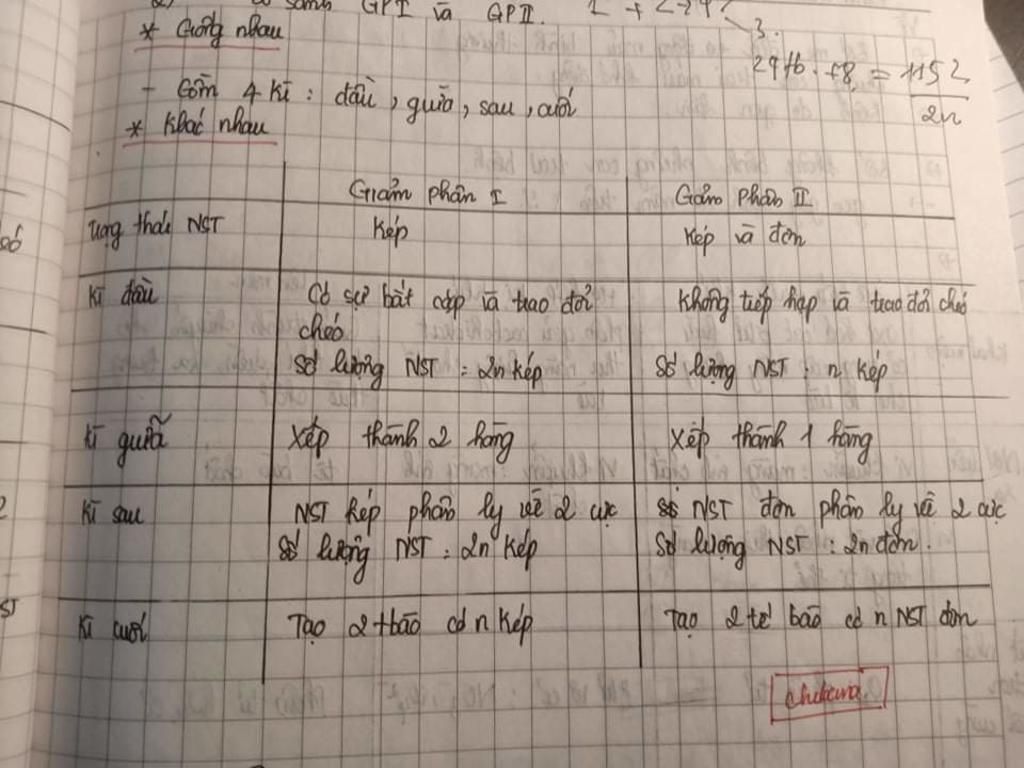 so sánh GPI và GPII.
* Giống nhau
3.
- Gồm 4 kì : đầu, giữa, sau, cuối
= 1152
2n
* Khác nhau
Giảm phân I
Giảm phân II
Trạng thái NST
Kép
Kép và đơn
Kì đầu
Có sự bắt cặp và trao đổi
chéo
Số lượng NST : 2n kép
Không tiếp hợp và trao đổi chéo
Số lượng NST : n kép
Kì giữa
Xếp thành 2 hàng
Xếp thành 1 hàng
Kì sau
NST kép phân ly về 2 cực
Số lượng NST : 2n kép
NST đơn phân ly về 2 cực
Số lượng NST : 2n đơn.
Kì cuối
Tạo 2 tbào có n kép
Tạo 2 tế bào có n NST đơn